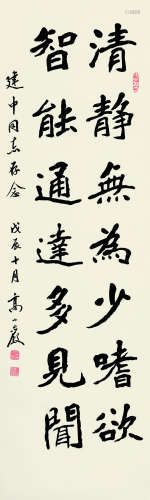 清靜無為少嗜欲
智能通達多見聞
建中同志存念
戊辰十月高小嚴